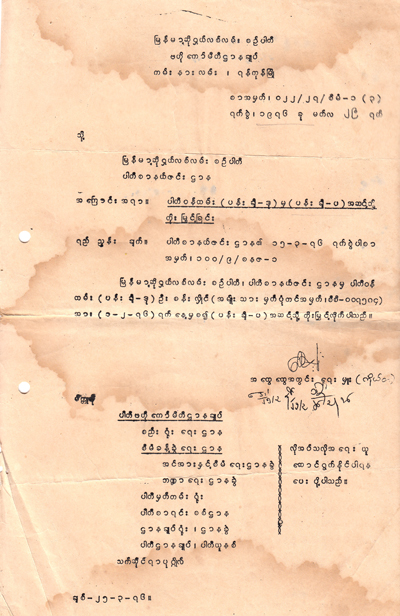 မြန်မာ့ဆိုရှယ်လစ်လမ်း စဉ်ပါတီ
ဗဟို ကော်မီတီဌာနချုပ်
ကမ်း နားလမ်း ၊ ရန်ကုန်မြို့
စာအမှတ်၊ ၀၂၂/၂၇/စီမံ-၁ (၃)
ရက်စွဲ၊ ၁၉၇၆ ခု မတ်လ ၂၉ ရက်
သို့
မြန်မာ့ဆိုရှယ်လစ်လမ်း စဉ်ပါတီ
ပါတီစာနယ်ဇင်း ဌာန
အကြောင်းအရာ။ ပါတီဝန်ထမ်း (ပန်း ချီ-၃) မှ (ပန်း ချီ-၂) အဆင့်သို့
တိုး မြှင့်ခြင်း
ရည် ညွှန်း ချက်။ ပါတီစာနယ်ဇင်း ဌာန၏ ၁၅-၃-၇၆ ရက်စွဲပါစာ
အမှတ်၊ ၁၀၀/၉/စနဇ-၁
မြန်မာ့ဆိုရှယ်လစ်လမ်း စဉ်ပါတီ၊ ပါတီစာနယ်ဇင်း ဌာနမှ ပါတီဝန်
ထမ်း (ပန်း ချီ-၃) ဦး စန်း လှိုင် (အမျိုး သား မှတ်ပုံတင်အမှတ်၊
အား (၁-၂-၇၆) ရက် နေ့မှစ၍ (ပန်း ချီ-၂) အဆင့်သို့ တိုး မြှင့်လိုက်ပါသည်။
အ ထွေ ထွေအတွင်း ရေး မှူး (ကိုယ်စား)
မိတ္တူ
ပါတီဗဟို ကော်မီတီဌာနချုပ်
စည်း ရုံး ရေး ဌာန
စီမံခန့်ခွဲ ရေး ဌာန
အင်အား နှင့်စီမံ ရေး ဌာနခွဲ
ဘဏ္ဍာ ရေး ဌာနခွဲ
ပါတီမှတ်တမ်း ရုံး
ပါတီစာရင်း စစ်ဌာန
ဌာနချုပ်ရုံး ၊ ဌာနခွဲ
ပါတီဌာနချုပ်၊ ပါတီယူနစ်
သက်ဆိုင်ရာပုဂ္ဂိုလ်
လိုအပ်သလိုအ ရေး ယူ
ဆောင်ရွက်နိုင်ပါရန်
ပေး ပို့ပါသည်။
ချစ်-၂၅-၃-၇၆။